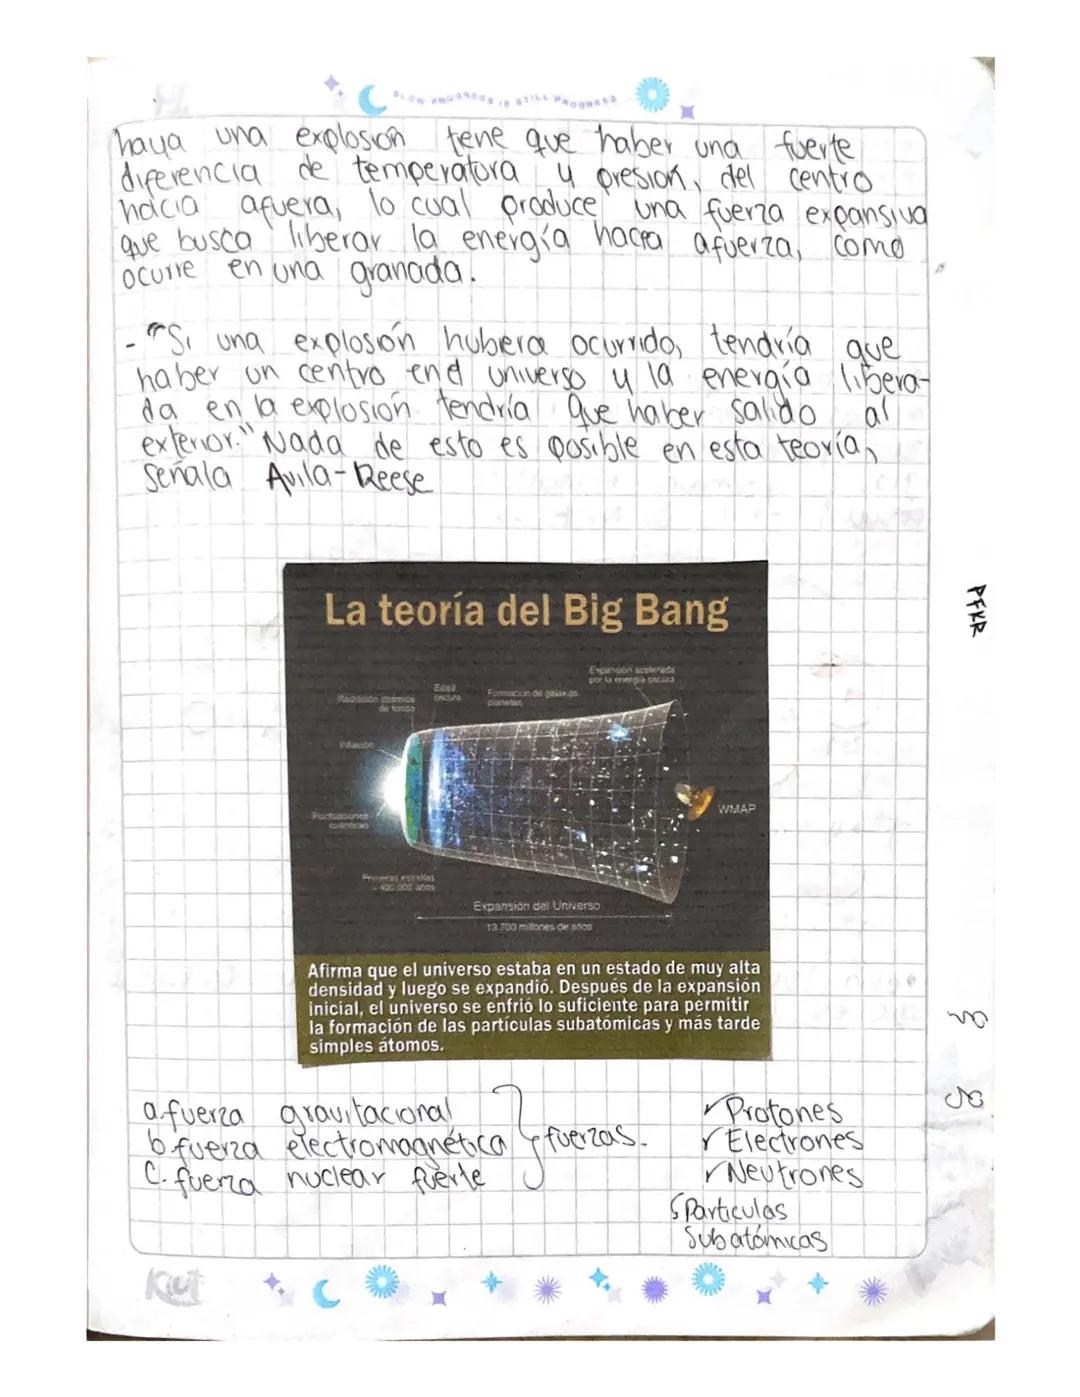 SLOW PROGRESS IS STILL PROGRESS
haya una explosión tene que haber una fuerte
diferencia de temperatura y presión, del centro
hacia afuera, lo cual produce una fuerza expansiva
que busca liberar la energía hacia afuerza, como
ocurre en una granada.
- "Si una explosión hubera ocurrido, tendría que
haber un centro en el universo y la energía libera-
da en la explosión tendría que haber salido al
exterior." Nada de esto es posible en esta teoría,
señala Avila-Reese
La teoría del Big Bang
Expansión acelerada
por la energía oscura
Edad
oscura
Formación de galaxias
planetas
Radiación cósmica
de fondo
Inflación
Fluctuaciones
cuánticas
WMAP
Primeras estrellas
~ 400.000 años
Expansión del Universo
13.700 millones de años
Afirma que el universo estaba en un estado de muy alta
densidad y luego se expandió. Después de la expansión
inicial, el universo se enfrió lo suficiente para permitir
la formación de las partículas subatómicas y más tarde
simples átomos.
a. fuerza gravitacional
b. fuerza electromagnética } fuerzas.
C. fuerza nuclear fuerte
✓Protones
✓Electrones
✓Neutrones
Particulas
Subatómicas
Kiut
PFKR